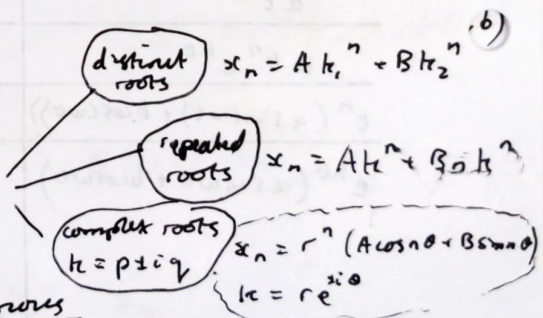 b)
distinct roots xₙ = Ak₁ⁿ + Bk₂ⁿ
repeated roots xₙ = Akⁿ + Bnkⁿ
complex roots
k = p±iq
xₙ = rⁿ (Acosnθ + Bsinnθ)
k = re^±iθ